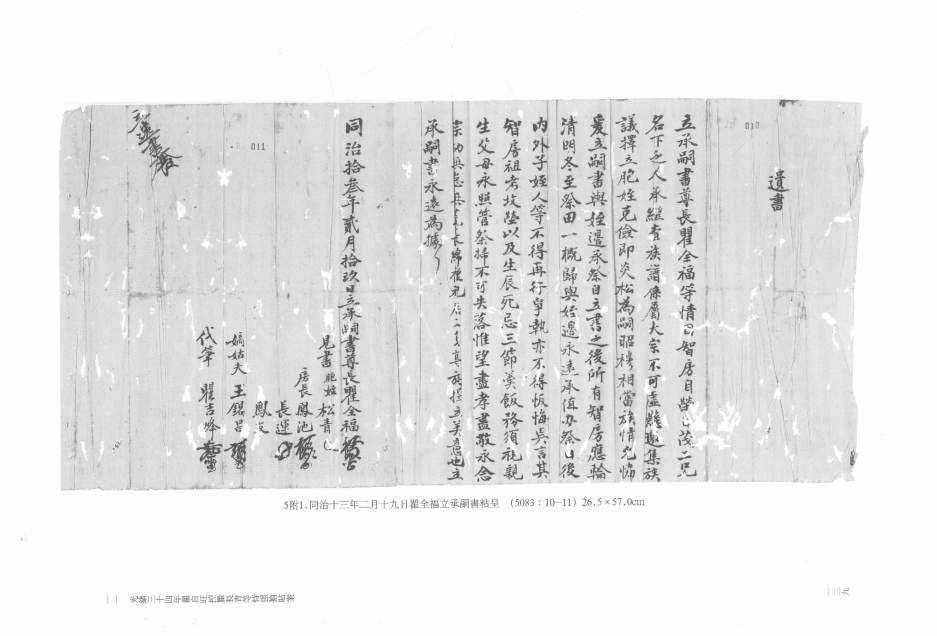 010
遺書
立承嗣書尊長瞿全福等情因智房自營茂二兄
名下乏人承繼查族譜係屬大宗不可虛懸邀集族
議擇立胞姪克儉即炎松為嗣昭穆相當族情允協
爰立嗣書與姪邊承祭自立書之後所有智房應輪
清明冬至祭田一概歸與姪邊永遠承值办祭日後
內外子姪人等不得再行爭執亦不得恢悔異言其
智房祖考坟塋以及生辰死忌三節羹飯務須視親
生父母永照管祭掃不可失落惟望盡孝盡敬永念
宗功
承嗣書永遠為據
011
同治拾叁年貳月拾玖日立承嗣書尊長瞿全福
見書胞姪松青
房長鳳池
長運
鳳
嫡姑夫王錦昌
代筆瞿吉峰
5附1.同治十三年二月十九日瞿全福立承嗣書粘呈 (5083:10—11) 26.5×57.0cm
二三九